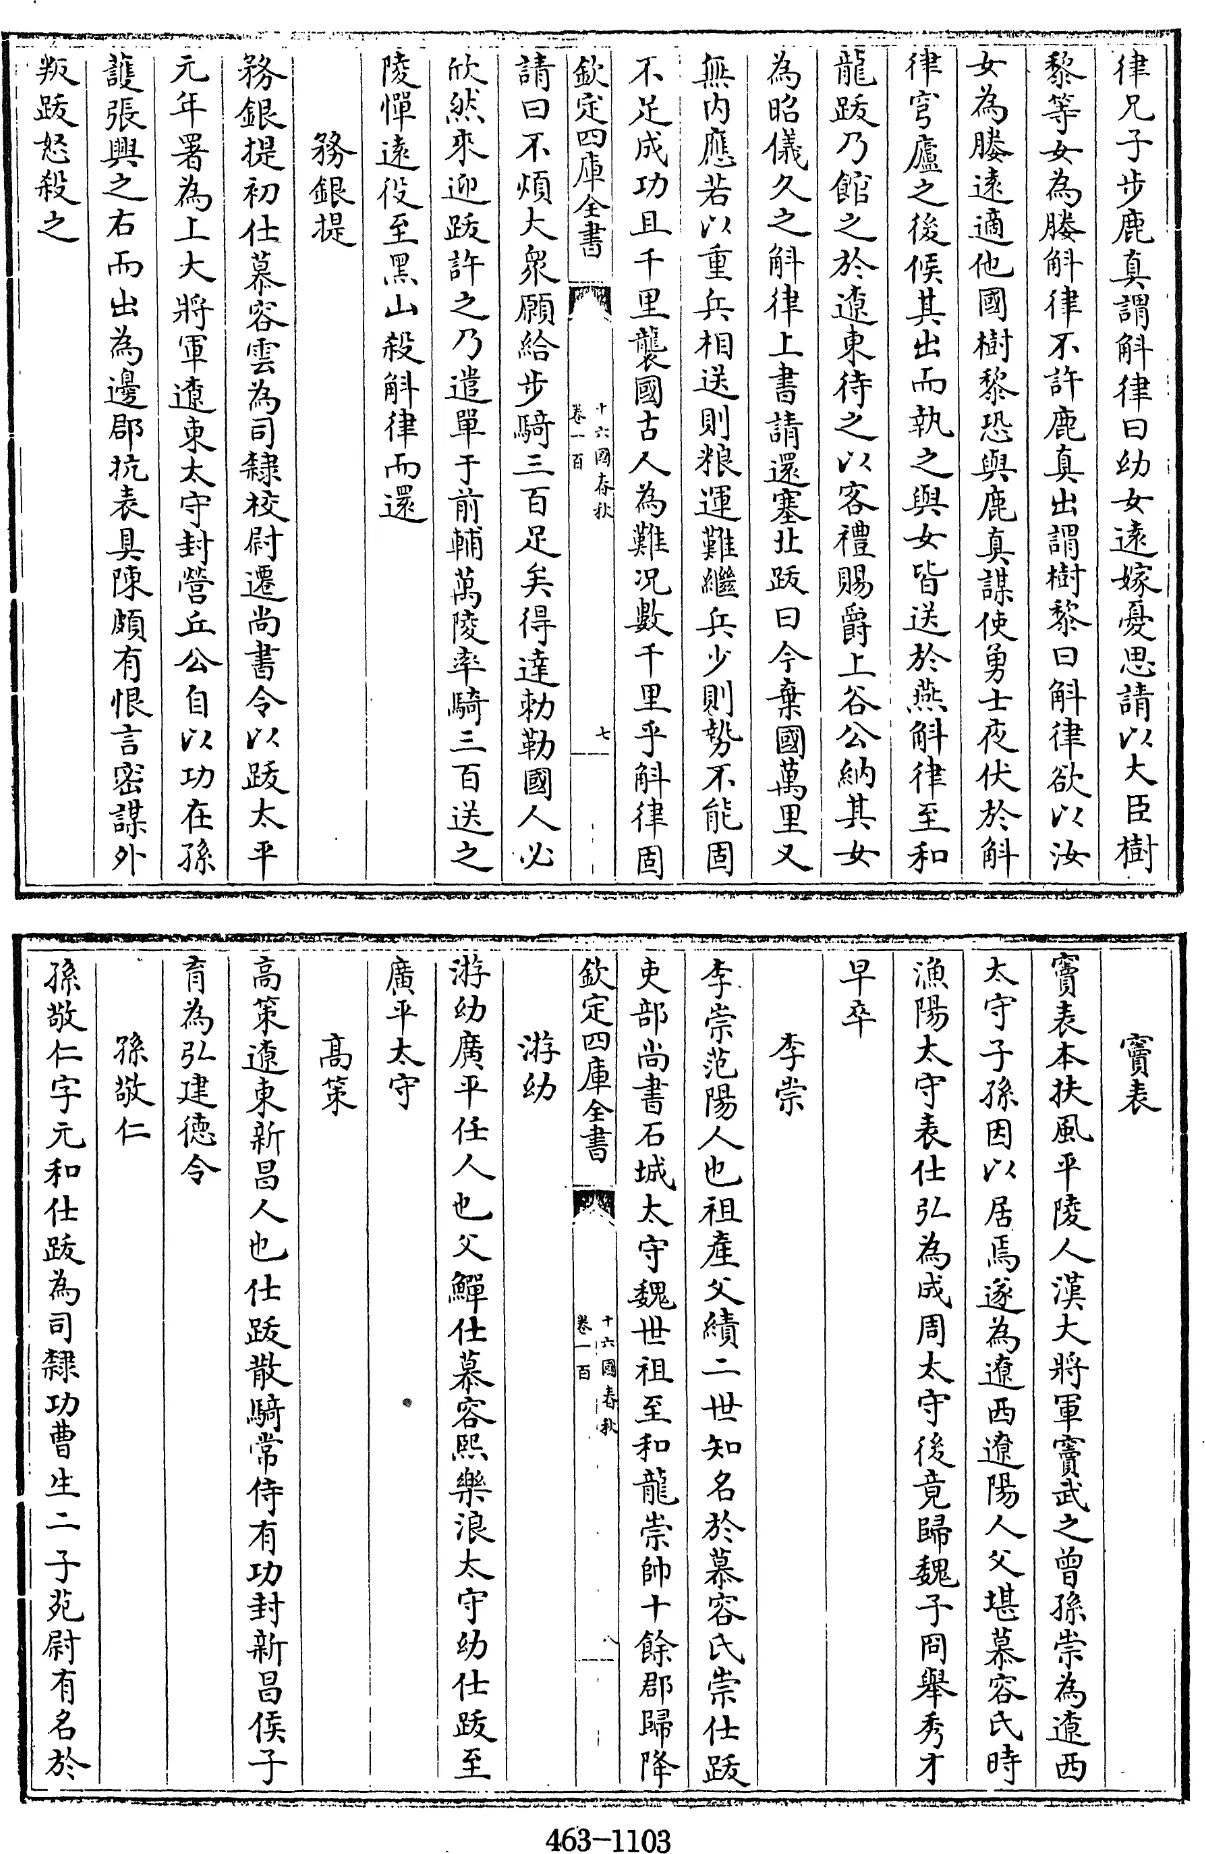 律兄子步鹿真謂斛律曰幼女遠嫁憂思請以大臣樹
黎等女為媵斛律不許鹿真出謂樹黎曰斛律欲以汝
女為媵遠適他國樹黎恐與鹿真謀使勇士夜伏於斛
律穹廬之後候其出而執之與女皆送於燕斛律至和
龍跋乃館之於遼東待之以客禮賜爵上谷公納其女
為昭儀久之斛律上書請還塞北跋曰今棄國萬里又
無内應若以重兵相送則粮運難繼兵少則勢不能固
不足成功且千里襲國古人為難况數千里乎斛律固
欽定四庫全書
十六國春秋
卷一百
七
請曰不煩大衆願給步騎三百足矣得達勑勒國人必
欣然來迎跋許之乃遣單于前輔萬陵率騎三百送之
陵憚遠役至黑山殺斛律而還
務銀提
務銀提初仕慕容雲為司隸校尉遷尚書令以跋太平
元年署為上大將軍遼東太守封營丘公自以功在孫
護張興之右而出為邊郡抗表具陳頗有恨言密謀外
叛跋怒殺之
竇表
竇表本扶風平陵人漢大將軍竇武之曾孫崇為遼西
太守子孫因以居焉遂為遼西遼陽人父堪慕容氏時
漁陽太守表仕弘為成周太守後竟歸魏子冏舉秀才
早卒
李崇
李崇范陽人也祖產父績二世知名於慕容氏崇仕跋
吏部尚書石城太守魏世祖至和龍崇帥十餘郡歸降
欽定四庫全書
十六國春秋
卷一百
八
游幼
游幼廣平任人也父鱓仕慕容熙樂浪太守幼仕跋至
廣平太守
高策
高策遼東新昌人也仕跋散騎常侍有功封新昌侯子
育為弘建德令
孫敬仁
孫敬仁字元和仕跋為司隸功曹生二子苑尉有名於
463-1103